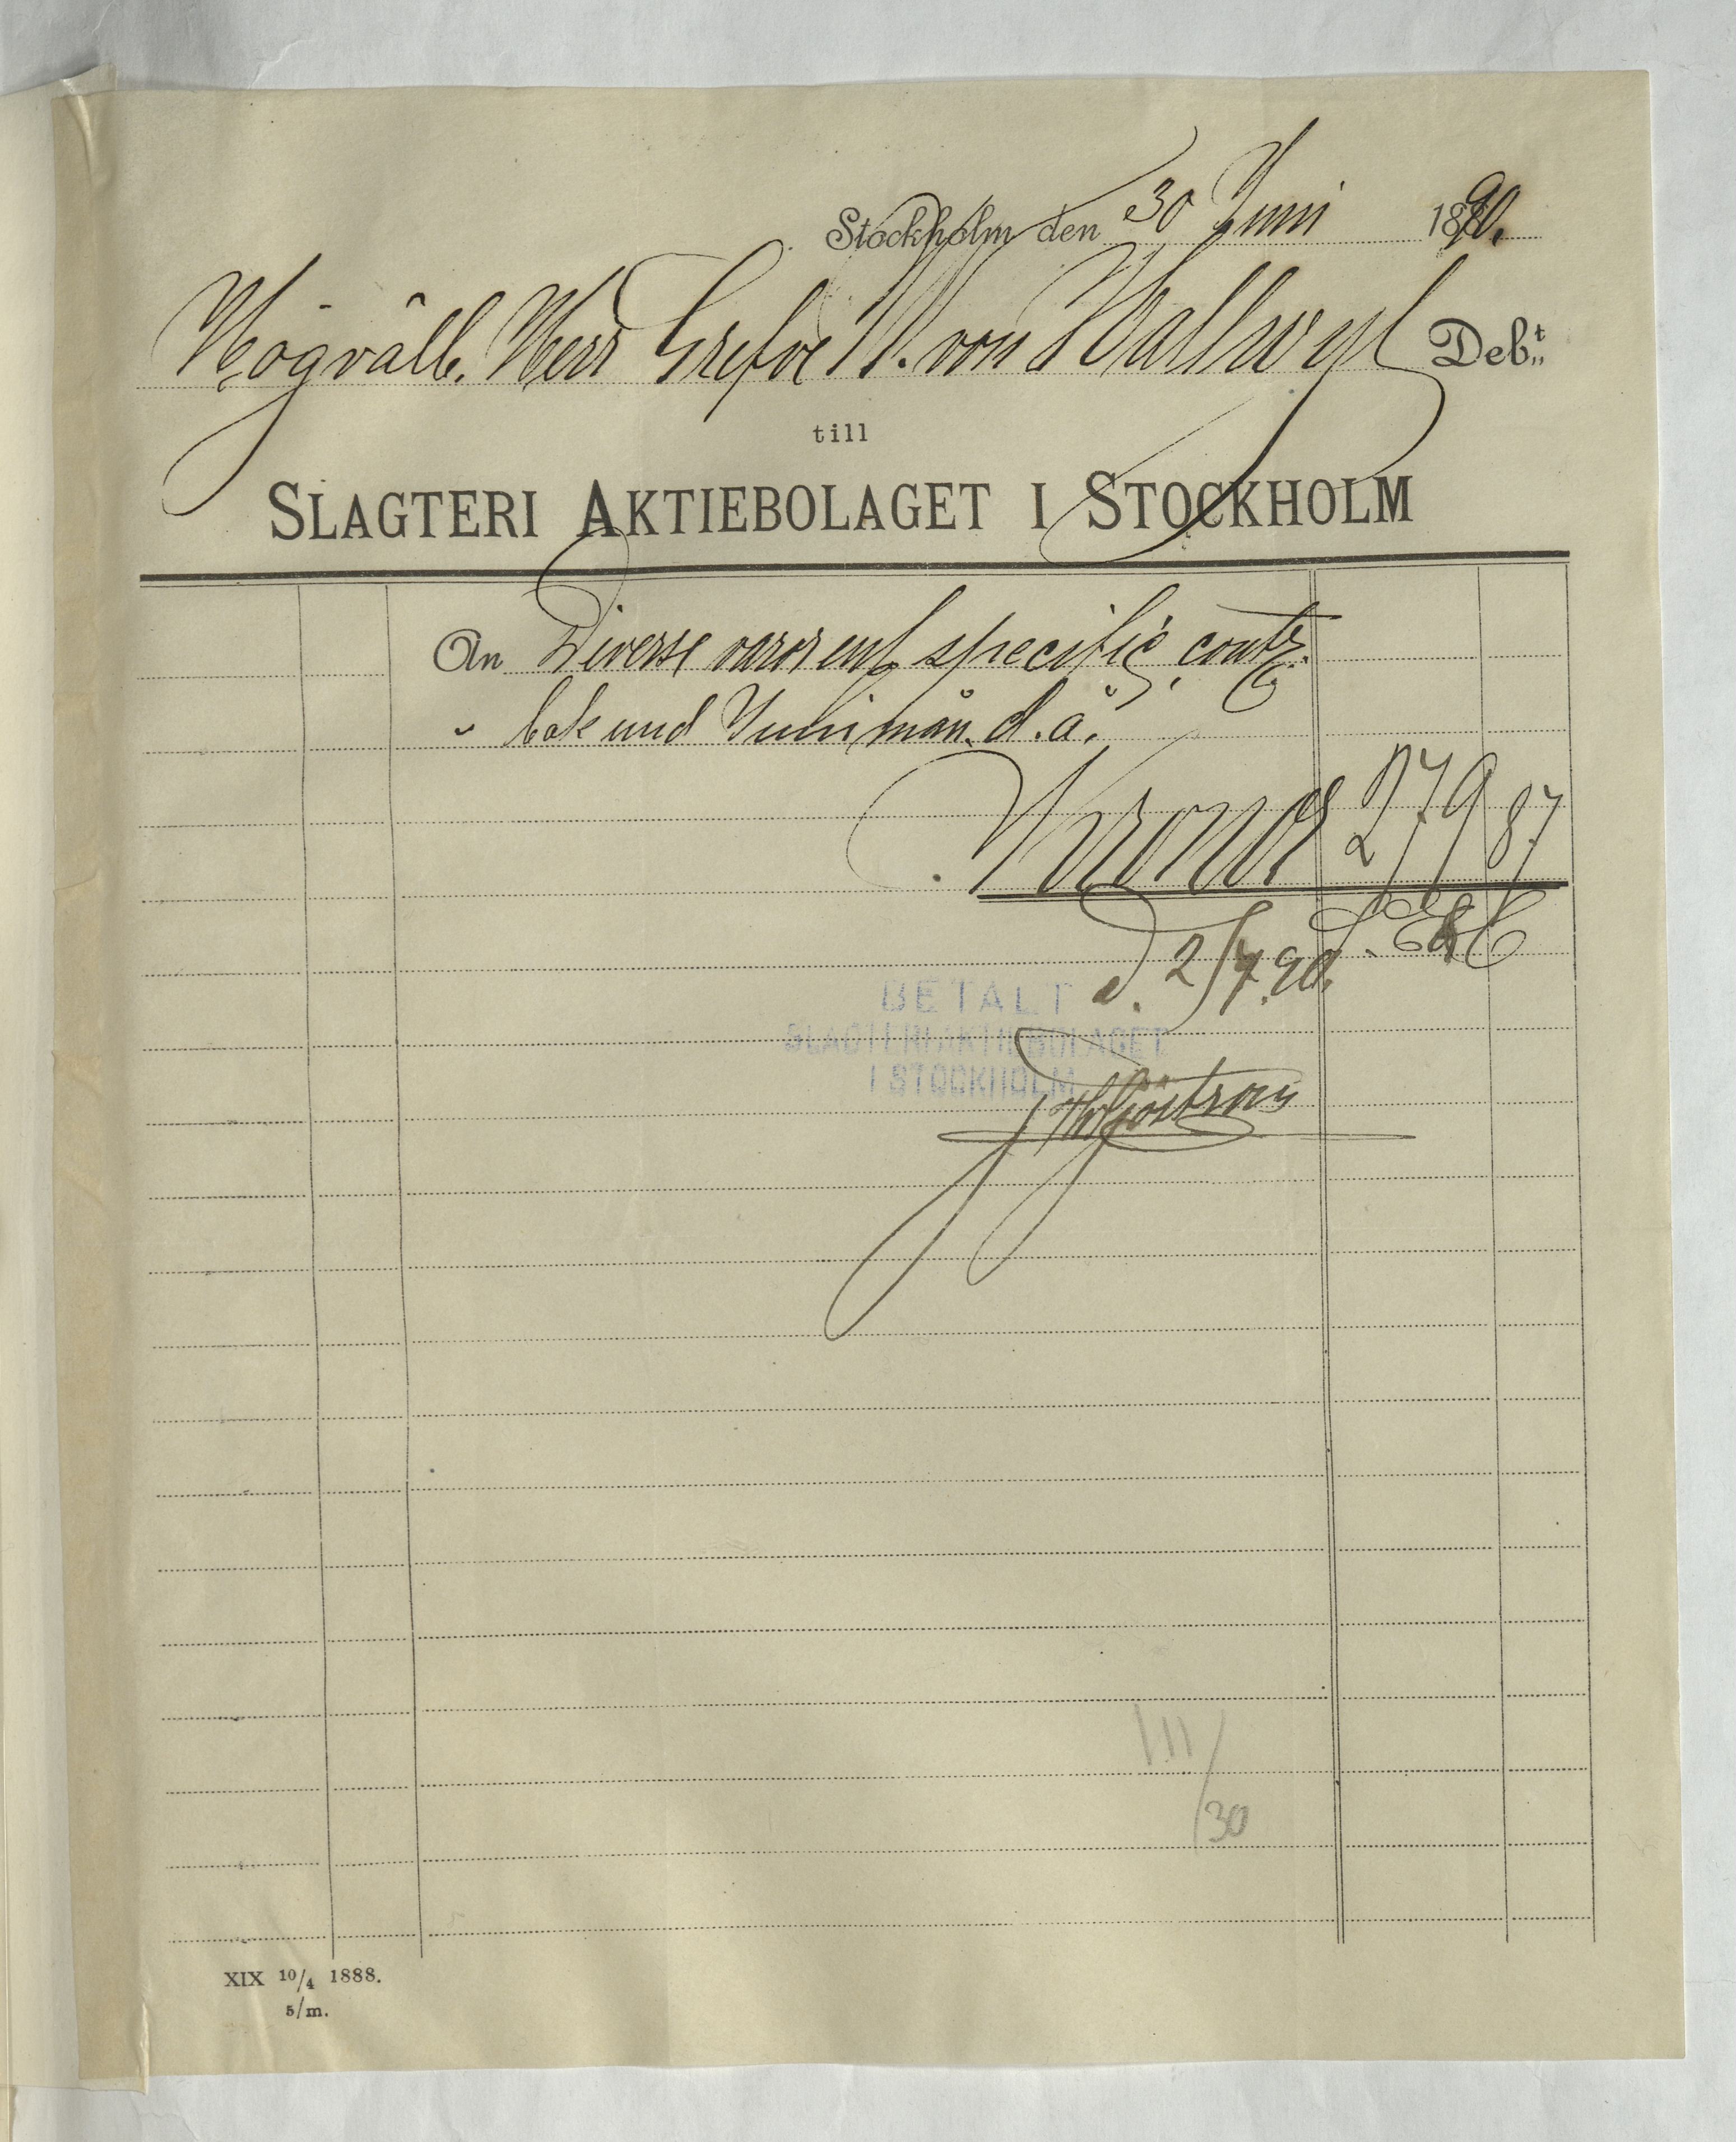 Stockholm den 30 Juni 1890.
Högvälb. Herr Grefve W. von Hallwyl Deb:t
till
SLAGTERI AKTIEBOLAGET I STOCKHOLM
An Diverse varor enl specific. contr.
" bok und Juni mån. d.å.
Kronor 279 87
d. 2/7 90.
BETALT
SLAGTERIAKTIEBOLAGET
I STOCKHOLM
111/30
XIX 10/4 1888.
5/m.